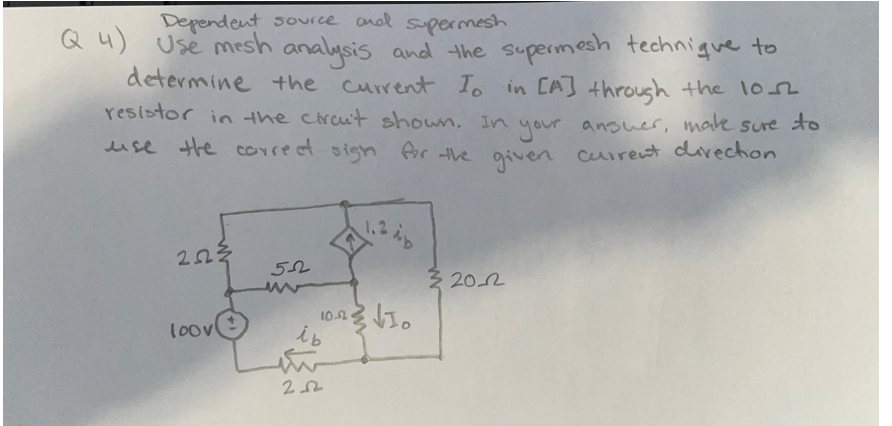 Dependent source and supermesh
Q 4) Use mesh analysis and the supermesh technique to
determine the current Io in [A] through the 10Ω
resistor in the circuit shown. In your answer, make sure to
use the correct sign for the given current direction
1.2 ib
2Ω
5Ω
20Ω
10Ω
Io
100V
+
-
ib
2Ω